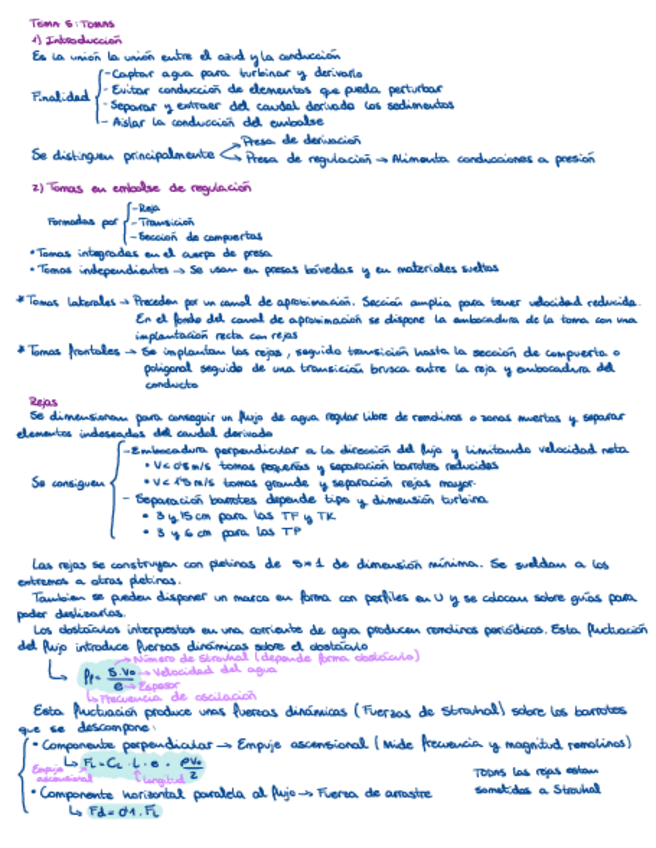 TEMA 5: TOMAS
1) Introducción
Es la unión la unión entre el azud y la conducción
Finalidad
- Captar agua para turbinar y derivarlo
- Evitar conducción de elementos que pueda perturbar
- Separar y extraer del caudal derivado los sedimentos
- Aislar la conducción del embalse
Se distinguen principalmente
Presa de derivación
Presa de regulación → Alimenta conducciones a presión
2) Tomas en embalse de regulación
Formadas por
- Reja
- Transición
- Sección de compuertas
• Tomas integradas en el cuerpo de presa
• Tomas independientes → Se usan en presas bóvedas y en materiales sueltos
* Tomas laterales → Preceden por un canal de aproximación. Sección amplia para tener velocidad reducida.
En el fondo del canal de aproximación se dispone la embocadura de la toma con una
implantación recta con rejas
* Tomas frontales → Se implantan las rejas, seguido transición hasta la sección de compuerta o
poligonal seguido de una transición brusca entre la reja y embocadura del
conducto
Rejas
Se dimensionan para conseguir un flujo de agua regular libre de remolinos o zonas muertas y separar
elementos indeseados del caudal derivado
Se consiguen
- Embocadura perpendicular a la dirección del flujo y limitando velocidad neta
• V< 0'8 m/s tomas pequeñas y separación barrotes reducidas
• V< 1'5 m/s tomas grande y separación rejas mayor.
- Separación barrotes depende tipo y dimensión turbina
• 3 y 15 cm para las TF y TK
• 3 y 6 cm para las TP
Las rejas se construyen con pletinas de 5×1 de dimensión mínima. Se sueldan a los
extremos a otras pletinas.
Tambien se pueden disponer un marco en forma con perfiles en U y se colocan sobre guías para
poder deslizarlas.
Los obstáculos interpuestos en una corriente de agua producen remolinos periódicos. Esta fluctuación
del flujo introduce fuerzas dinámicas sobre el obstáculo
Número de Strouhal (depende forma obstáculo)
fr = S·Vo / e → Velocidad del agua
→ Espesor
Frecuencia de oscilación
Esta fluctuación produce unas fuerzas dinámicas (Fuerzas de Strouhal) sobre los barrotes
que se descompone:
• Componente perpendicular → Empuje ascensional (Mide frecuencia y magnitud remolinos)
FL = CL · L · e · ρVo / 2
Empuje ascensional
Longitud
TODAS las rejas estan
sometidas a Strouhal
• Componente horizontal paralela al flujo → Fuerza de arrastre
Fd = 0'1 · FL